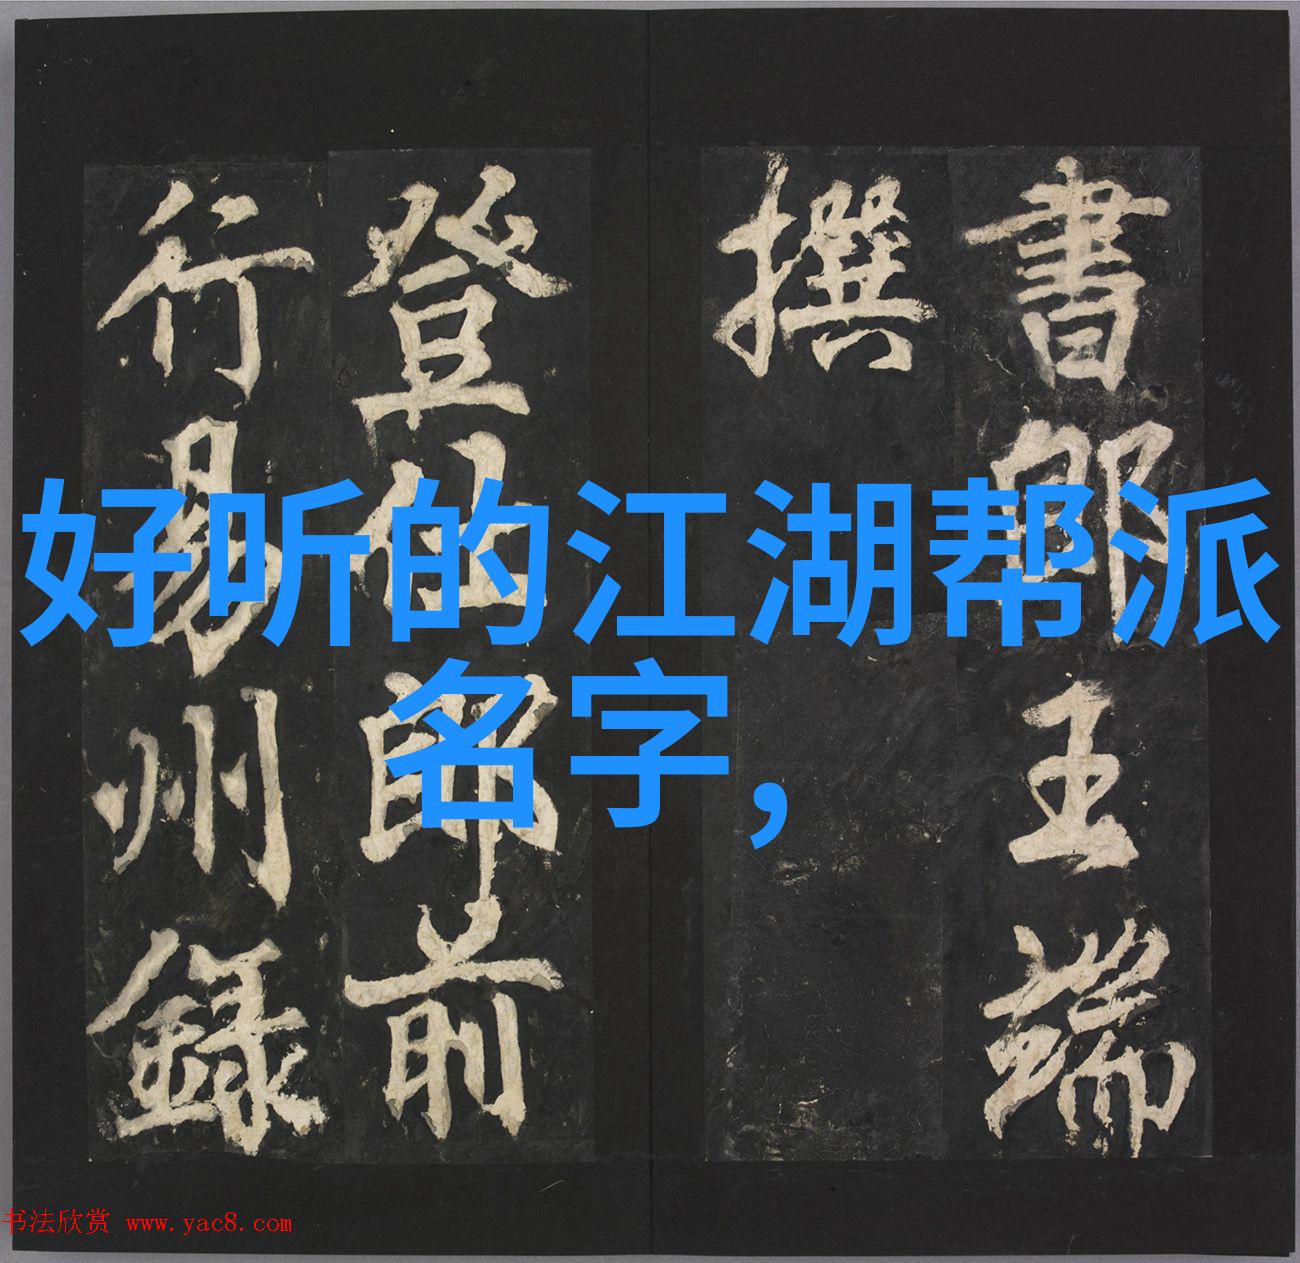 書郎王端
撰
登仕郎前
行易州錄
好听的江湖帮派
名字，
书法欣赏 www.yac8.com